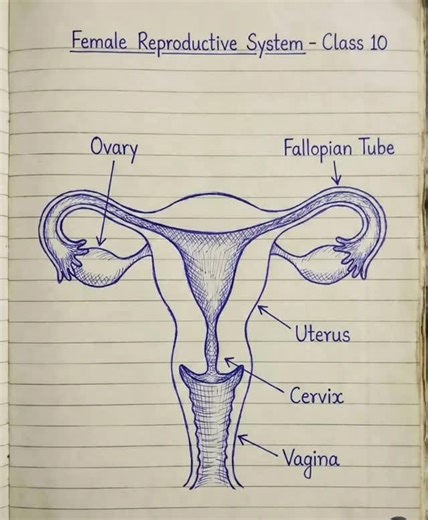 Female Reproductive System - Class 10
Ovary
Fallopian Tube
Uterus
Cervix
Vagina